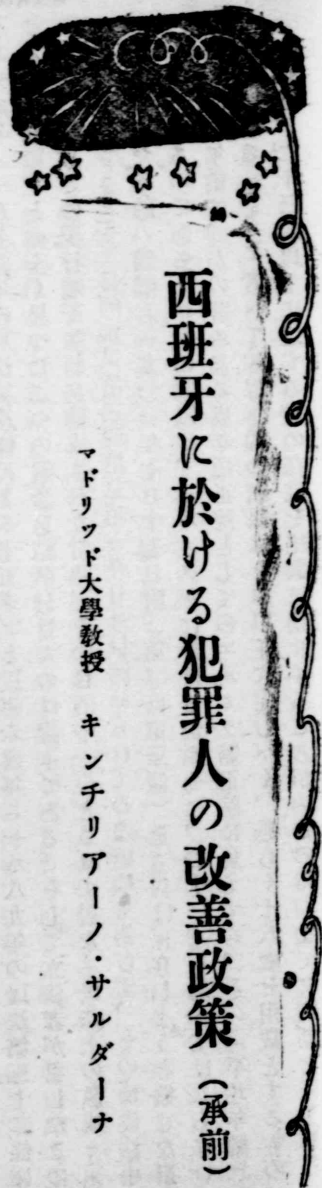 西班牙に於ける犯罪人の改善政策(承前)
マドリツド大學教授 キンチリアーノ・サルダーナ